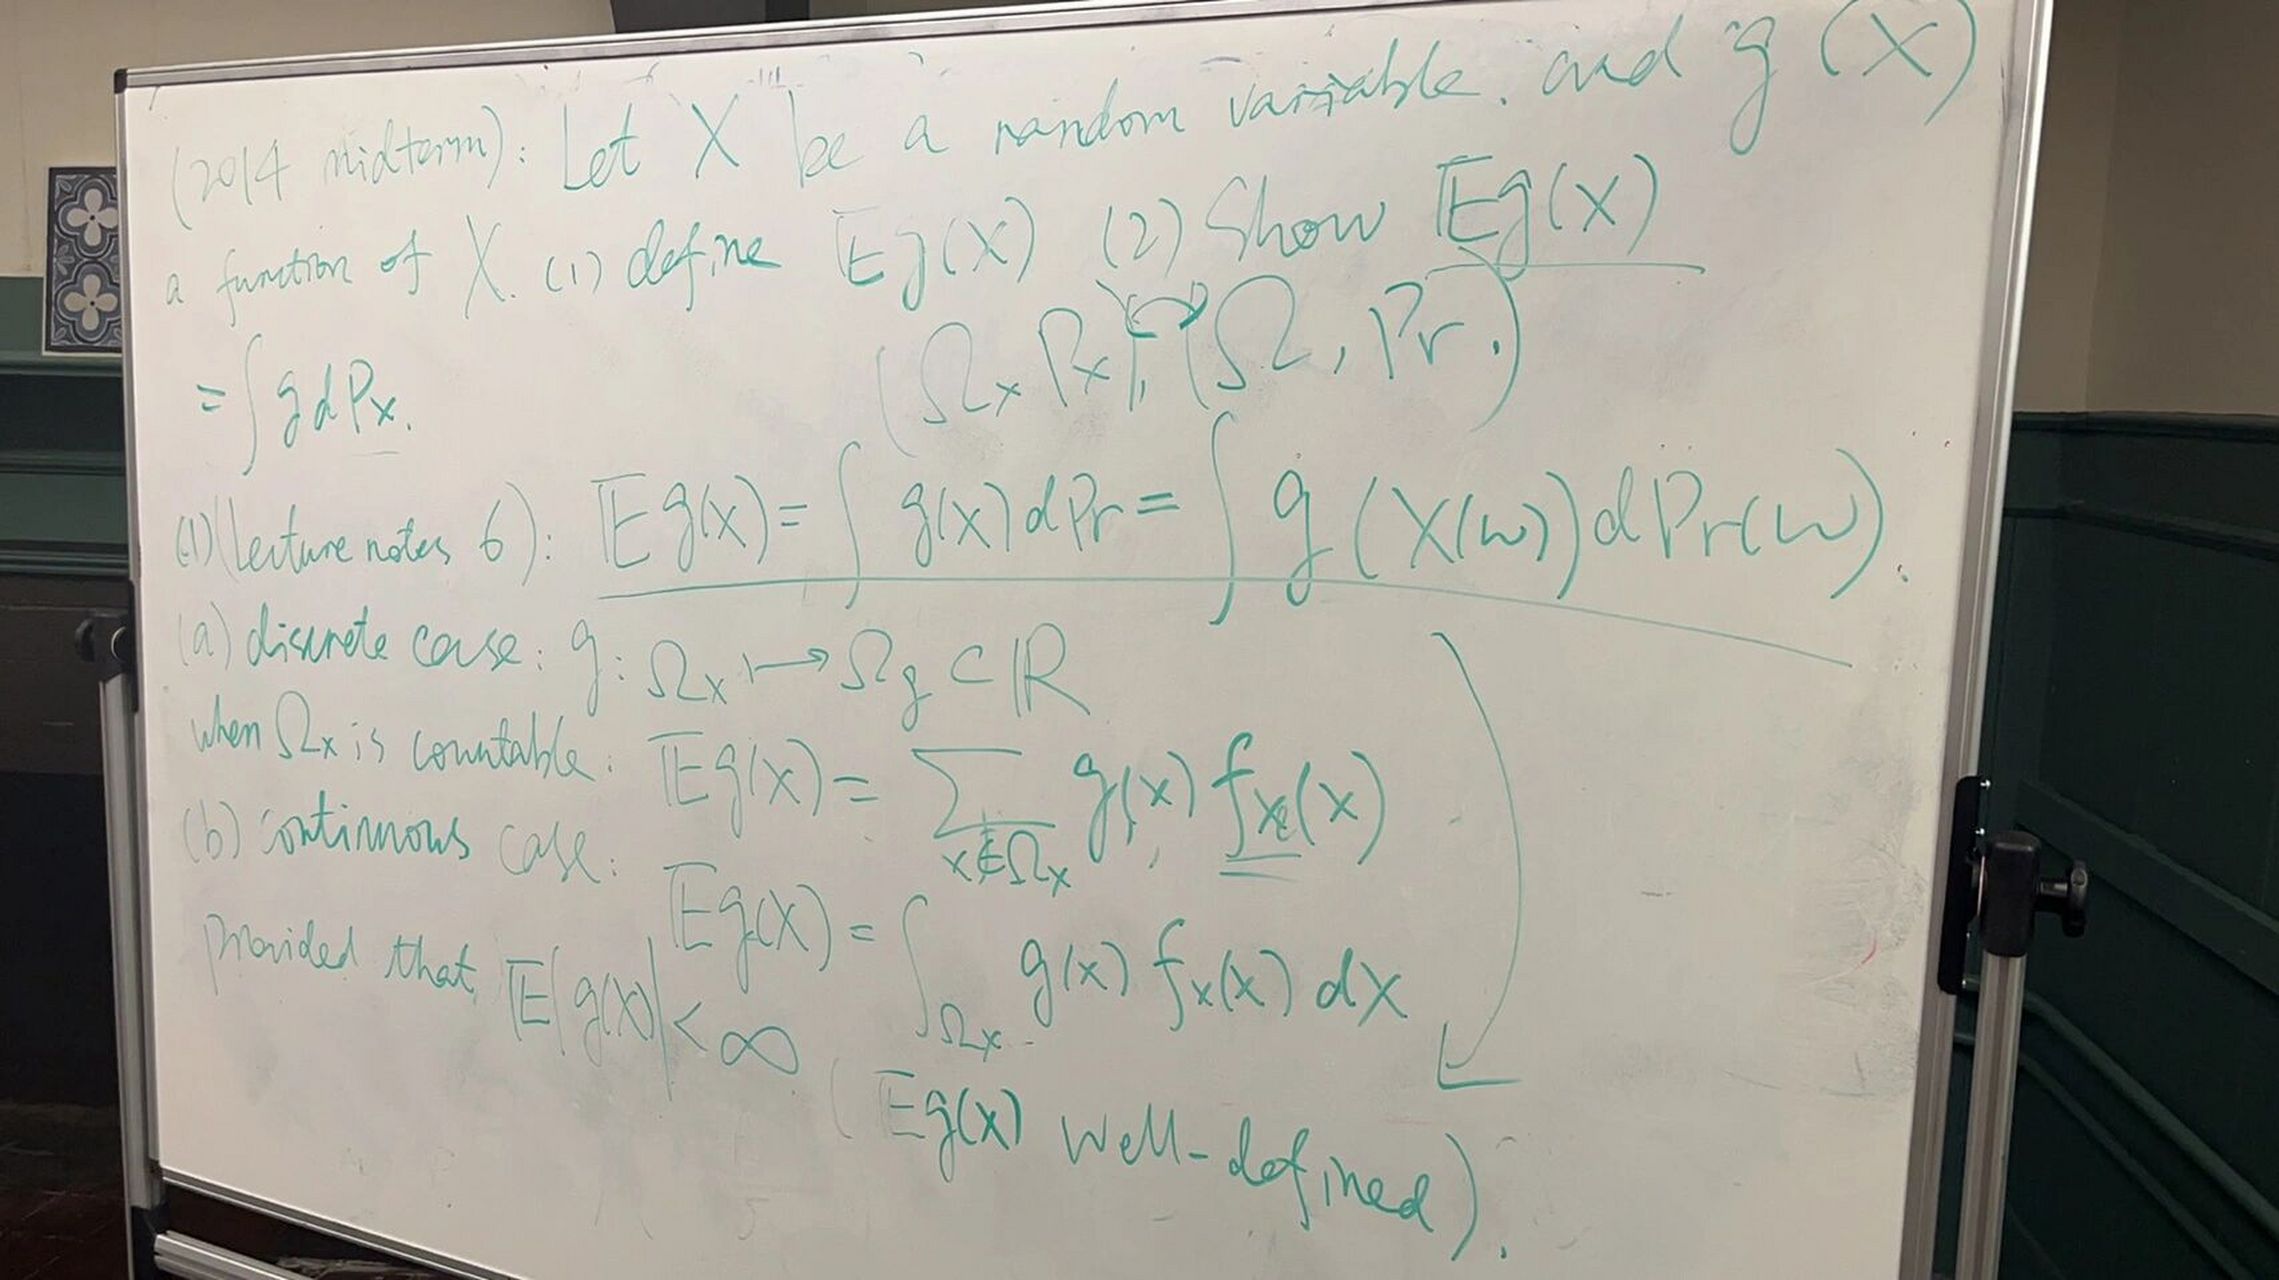 (2014 midterm): Let X be a random variable. and g(X)
a function of X. (1) define Eg(X) (2) Show Eg(X)
= ∫ g dPx.
(Ωx Px), (Ω, Pr.)
(1)(lecture notes 6): Eg(X) = ∫ g(X) dPr = ∫ g(X(ω)) dPr(ω).
(a) discrete case: g: Ωx ↦ Ωg ⊂ ℝ
when Ωx is countable: Eg(X) = ∑ x∈Ωx g(x) fx(x)
(b) continuous case: Eg(X) = ∫Ωx g(x) fx(x) dx
provided that E|g(X)| < ∞
(Eg(X) well-defined).